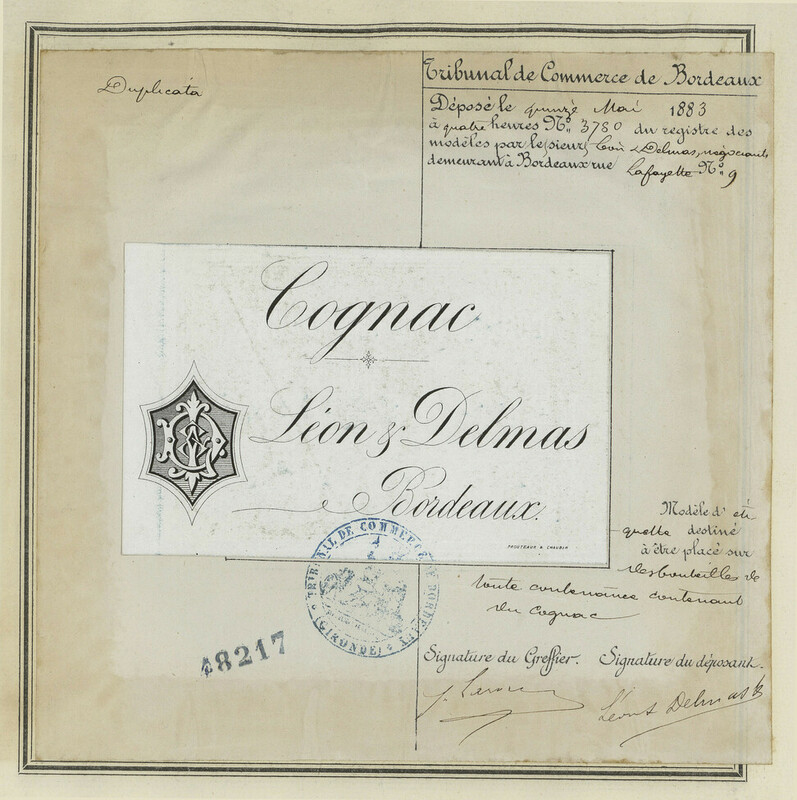 Duplicata
Tribunal de Commerce de Bordeaux
Déposé le quinze Mai 1883
à quatre heures Nº 3780 du registre des
modèles par le sieurs Léon & Delmas, négociants
demeurant à Bordeaux rue Lafayette Nº 9
Cognac
Léon & Delmas
Bordeaux.
PROUTEAUX & CHAUBIN
Modèle d'éti
quette destiné
à être placé sur
des bouteilles de
toute contenance contenant
du cognac
TRIBUNAL DE COMMERCE DE BORDEAUX
(GIRONDE)
48217
Signature du Greffier. Signature du déposant.
Léon & Delmas